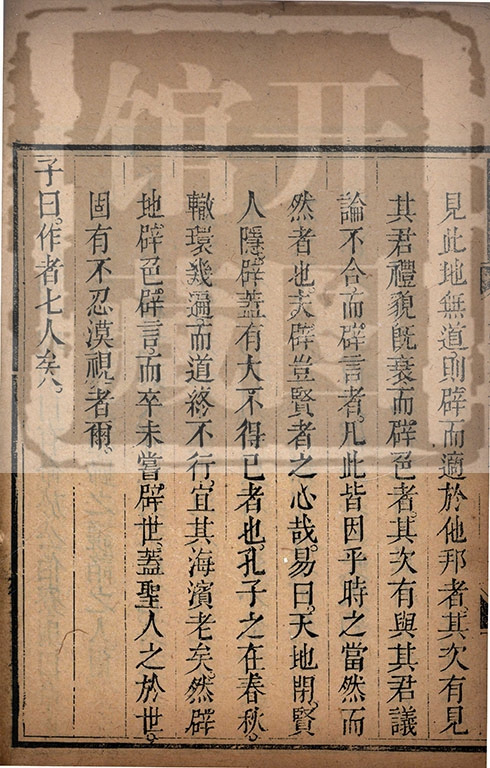 見此地無道則辟而適於他邦者其次有見
其君禮貌既衰而辟色者其次有與其君議
論不合而辟言者凡此皆因乎時之當然而
然者也夫辟豈賢者之心哉易曰天地閉賢
人隱辟蓋有大不得已者也孔子之在春秋
轍環幾遍而道終不行宜其海濱老矣然辟
地辟色辟言而卒未嘗辟世蓋聖人之於世
固有不忍漠視者爾
子曰作者七人矣